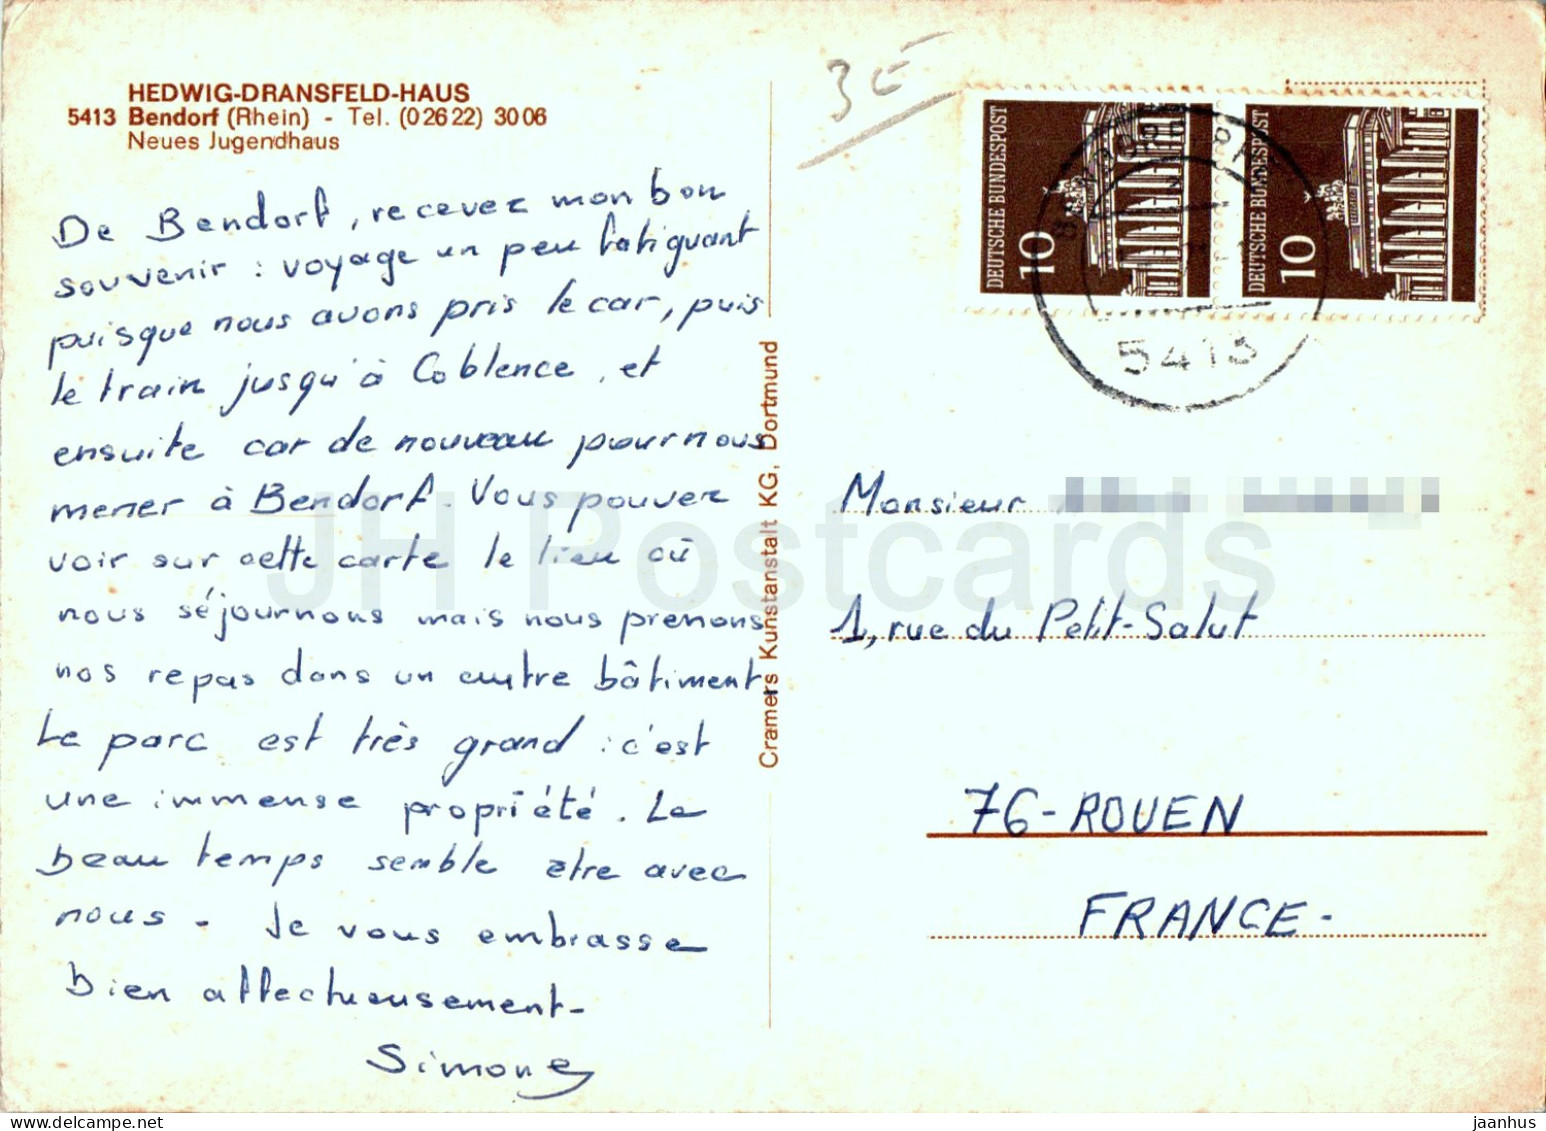 HEDWIG-DRANSFELD-HAUS
5413 Bendorf (Rhein) - Tel. (0 26 22) 30 06
Neues Jugendhaus
De Bendorf, recevez mon bon
souvenir : voyage un peu fatiguant
puisque nous avons pris le car, puis
le train jusqu'à Coblence, et
ensuite car de nouveau pour nous
mener à Bendorf. Vous pouvez
voir sur cette carte le lieu où
nous séjournons mais nous prenons
nos repas dans un autre bâtiment.
Le parc est très grand : c'est
une immense propriété. Le
beau temps semble être avec
nous - Je vous embrasse
bien affectueusement -
Simone
Cramers Kunstanstalt KG, Dortmund
3 €
DEUTSCHE BUNDESPOST
10
DEUTSCHE BUNDESPOST
10
5413
Monsieur
1, rue du Petit-Salut
76 - ROUEN
FRANCE -
JH Postcards
www.delcampe.net
jaanhus